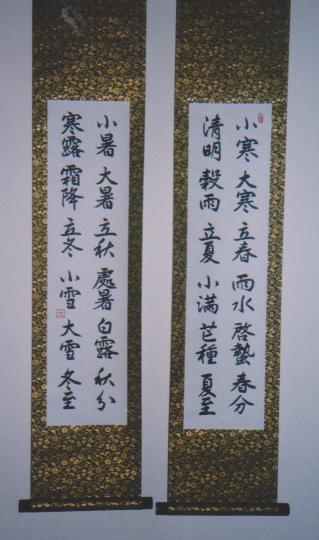 小寒 大寒 立春 雨水 啓蟄 春分
清明 穀雨 立夏 小満 芒種 夏至
小暑 大暑 立秋 處暑 白露 秋分
寒露 霜降 立冬 小雪 大雪 冬至